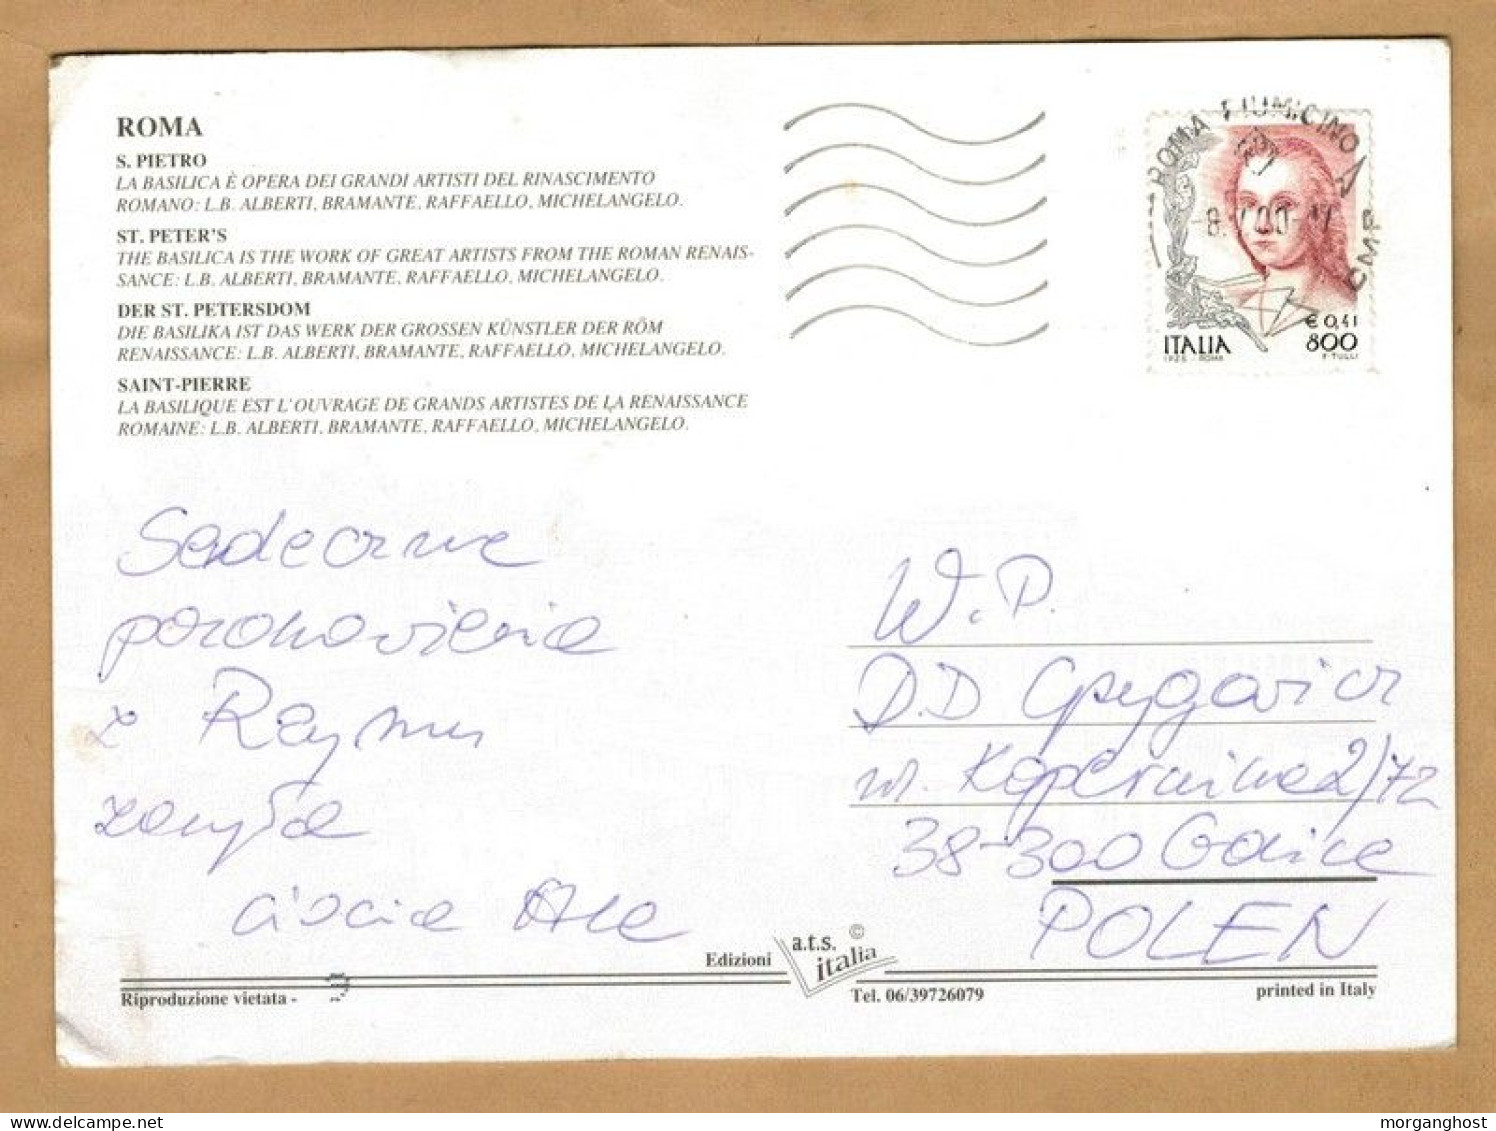 ROMA
S. PIETRO
LA BASILICA È OPERA DEI GRANDI ARTISTI DEL RINASCIMENTO
ROMANO: L.B. ALBERTI, BRAMANTE, RAFFAELLO, MICHELANGELO.
ST. PETER'S
THE BASILICA IS THE WORK OF GREAT ARTISTS FROM THE ROMAN RENAIS-
SANCE: L.B. ALBERTI, BRAMANTE, RAFFAELLO, MICHELANGELO.
DER ST. PETERSDOM
DIE BASILIKA IST DAS WERK DER GROSSEN KÜNSTLER DER RÖM
RENAISSANCE: L.B. ALBERTI, BRAMANTE, RAFFAELLO, MICHELANGELO.
SAINT-PIERRE
LA BASILIQUE EST L'OUVRAGE DE GRANDS ARTISTES DE LA RENAISSANCE
ROMAINE: L.B. ALBERTI, BRAMANTE, RAFFAELLO, MICHELANGELO.
ROMA FIUMICINO
CMP
€ 0,41
ITALIA 800
I.P.Z.S. - ROMA F. TULLI
Serdeczne
pozdrowienia
z Rzymu
zasyła
ciocia Ala
W.P.
D.D
ul. Kopernika 2/72
38-300 Gorlice
POLEN
Edizioni a.t.s. italia ©
Riproduzione vietata -
Tel. 06/39726079
printed in Italy
morganghost